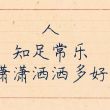 人
知足常乐
潇潇洒洒多好